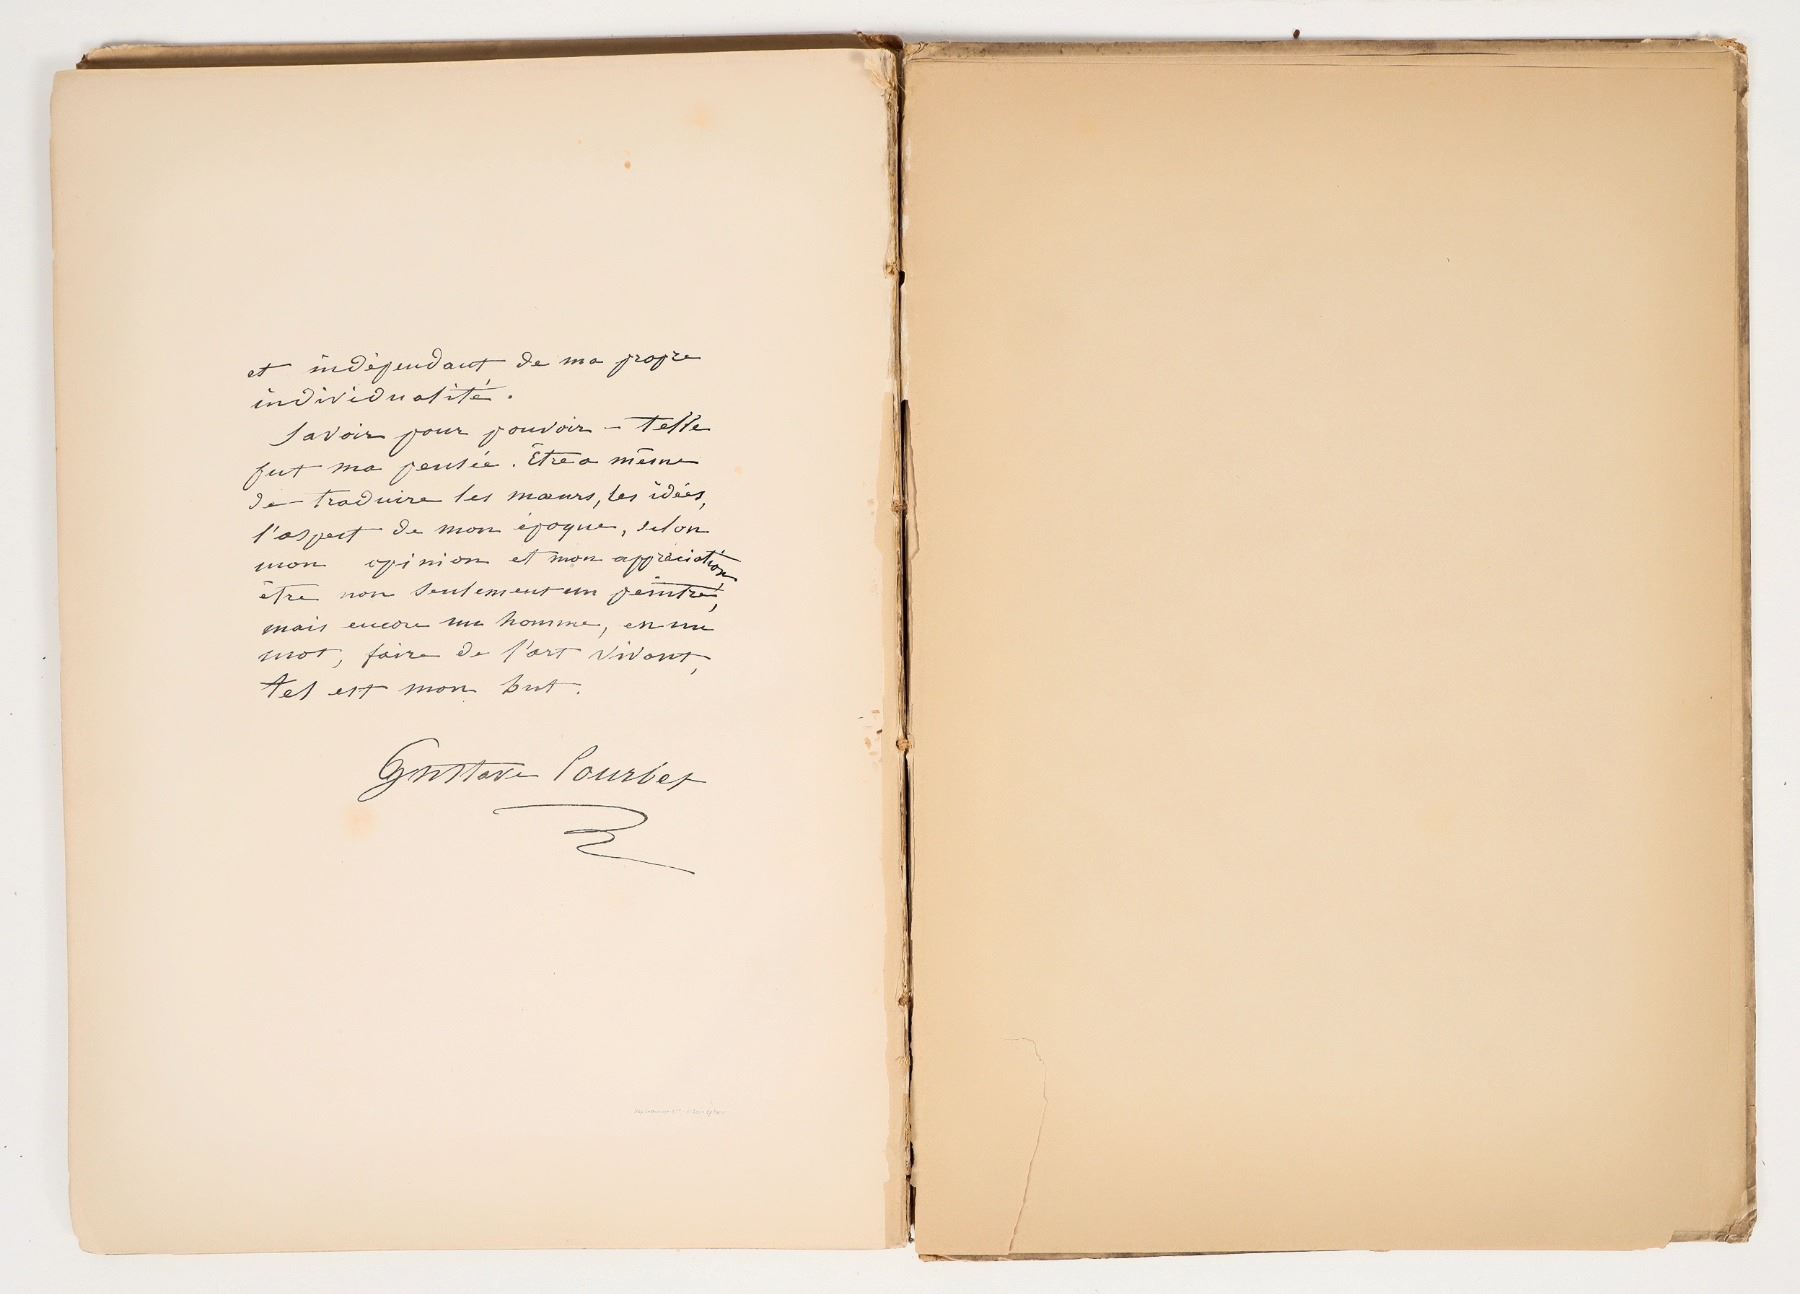 et indépendant de ma propre
individualité.
Savoir pour pouvoir – telle
fut ma pensée. Être a même
de traduire les mœurs, les idées,
l'aspect de mon époque, selon
mon opinion et mon appréciation,
être non seulement un peintre,
mais encore un homme, en un
mot, faire de l'art vivant,
tel est mon but.
Gustave Courbet